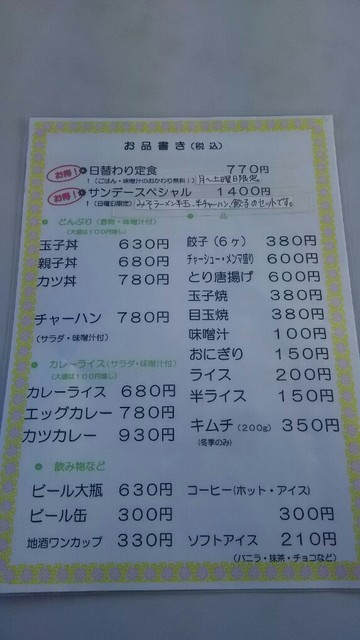 お品書き(税込)
お得! 日替わり定食 770円
!(ごはん・味噌汁のおかわり無料!)月〜土曜日限定。
お得! サンデースペシャル 1400円
!(日曜日限定)みそラーメン半玉、半チャーハン、餃子のセットです。
どんぶり(香物・味噌汁付)
(大盛は100円増し)
玉子丼 630円
親子丼 680円
カツ丼 780円
チャーハン 780円
(サラダ・味噌汁付)
カレーライス(サラダ・味噌汁付)
(大盛は100円増し)
カレーライス 680円
エッグカレー 780円
カツカレー 930円
餃子(6ヶ) 380円
チャーシュー・メンマ盛り 600円
とり唐揚げ 600円
玉子焼 380円
目玉焼 380円
味噌汁 100円
おにぎり 150円
ライス 200円
半ライス 150円
キムチ(200g) 350円
(冬季のみ)
飲み物など
ビール大瓶 630円
ビール缶 300円
地酒ワンカップ 330円
コーヒー(ホット・アイス)
300円
ソフトアイス 210円
(バニラ・抹茶・チョコなど)